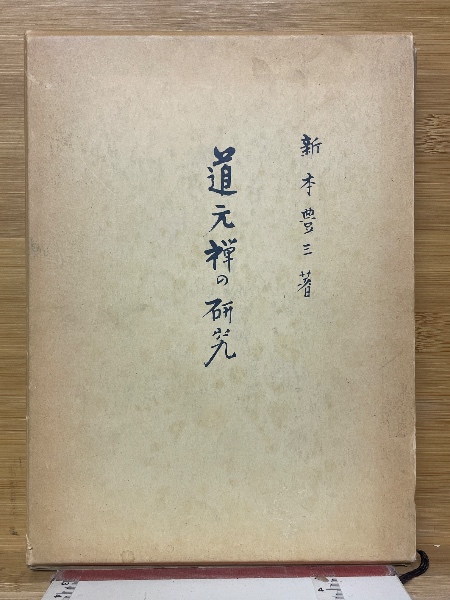 新本豊三著
道元禅の研究